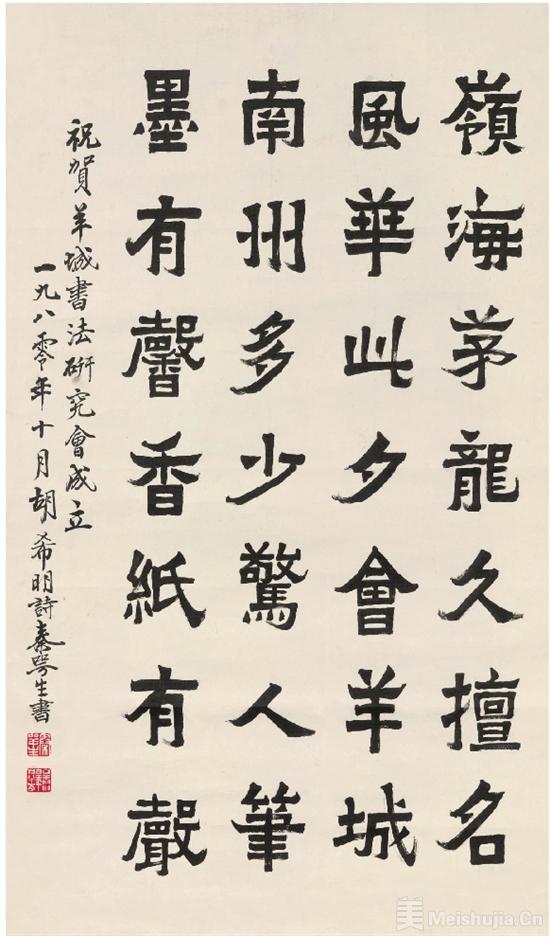 嶺海茅龍久擅名
風華此夕會羊城
南州多少驚人筆
墨有馨香紙有聲
祝賀羊城書法研究會成立
一九八零年十月胡希明詩秦咢生書
美 Meishujia.Cn